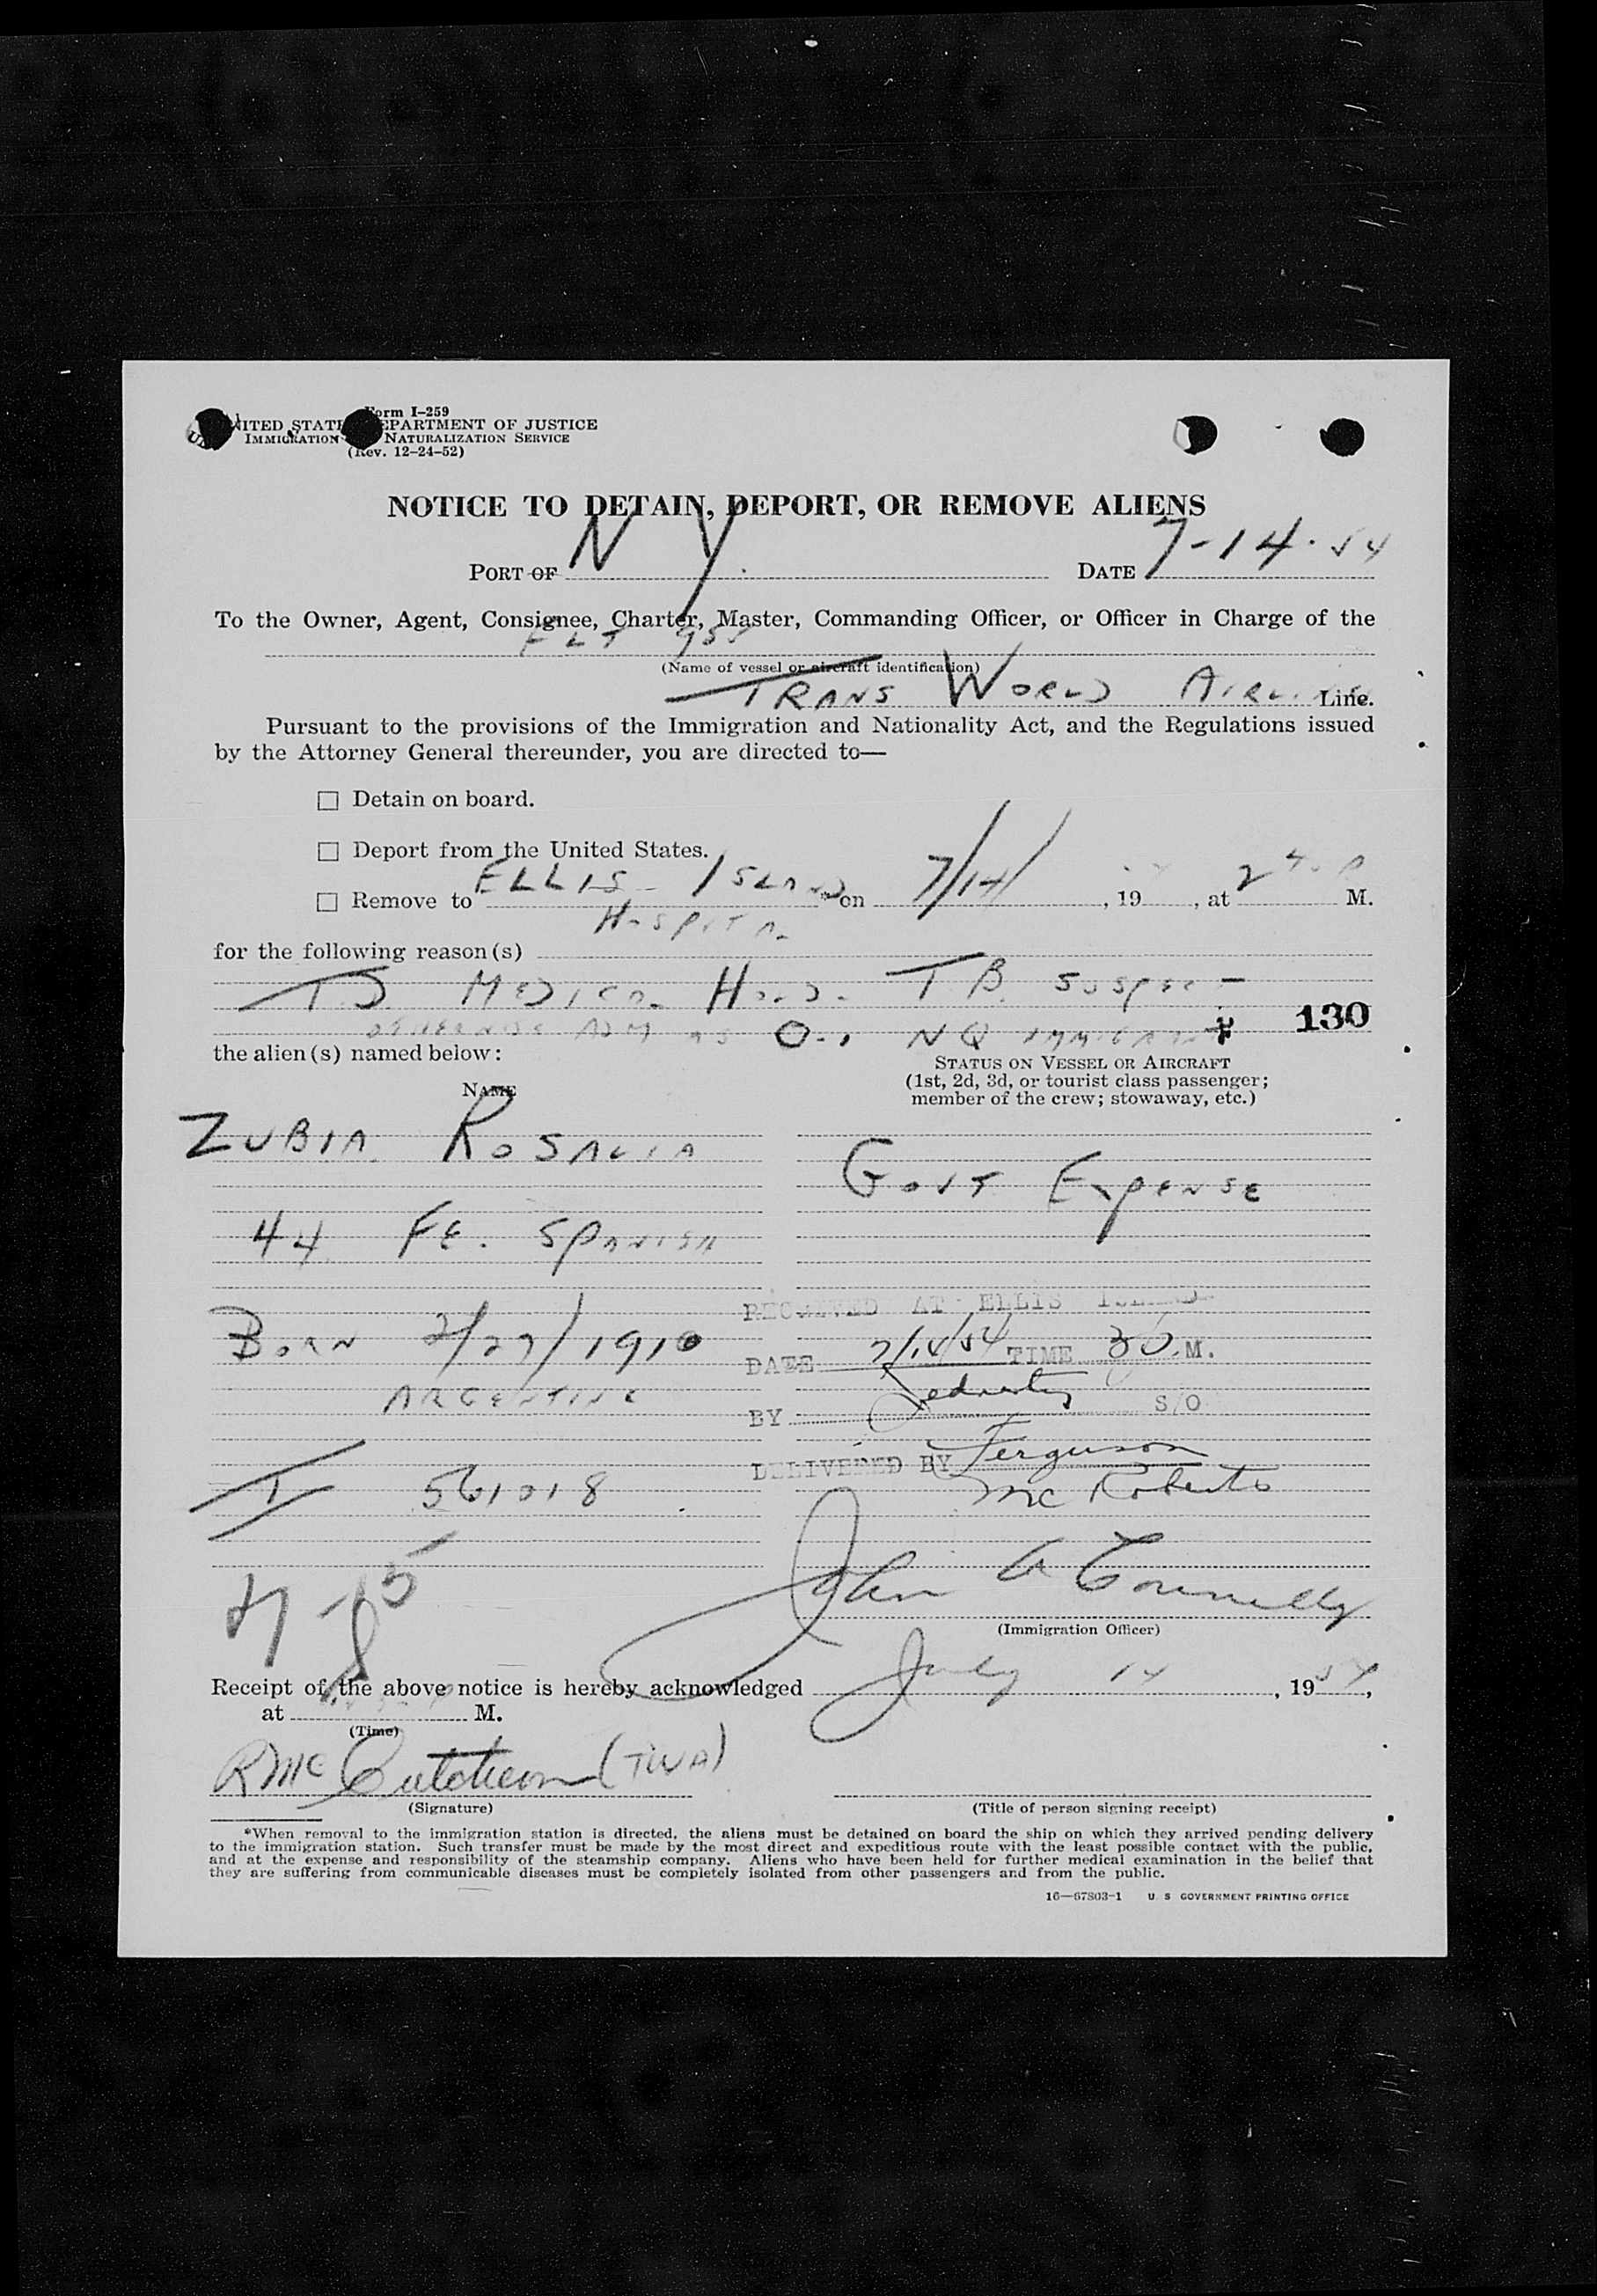 Form I-259
UNITED STATES DEPARTMENT OF JUSTICE
IMMIGRATION NATURALIZATION SERVICE
(Rev. 12-24-52)
NOTICE TO DETAIN, DEPORT, OR REMOVE ALIENS
PORT OF N Y. DATE 7-14-54
To the Owner, Agent, Consignee, Charter, Master, Commanding Officer, or Officer in Charge of the
FLT
(Name of vessel or aircraft identification)
TRANS WORLD AIRLINE Line.
Pursuant to the provisions of the Immigration and Nationality Act, and the Regulations issued
by the Attorney General thereunder, you are directed to—
☐ Detain on board.
☐ Deport from the United States.
☐ Remove to ELLIS ISLAND *on 7/14/, 19, at M.
HOSPITAL
for the following reason(s)
T.D. MEDICAL HOLD. T.B. SUSPECT
OTHERWISE ADM AS NQ IMMIGRANT 130
the alien(s) named below:
STATUS ON VESSEL OR AIRCRAFT
(1st, 2d, 3d, or tourist class passenger;
member of the crew; stowaway, etc.)
NAME
ZUBIA ROSALIA
GOVT EXPENSE
44 FE. SPANISH
RECEIVED AT ELLIS ISLAND
BORN 2/27/1910
DATE 7/14/54 TIME M.
ARGENTINE
BY S/O
DELIVERED BY Ferguson
Mc Roberts
T 561018
John A Connelly
(Immigration Officer)
Receipt of the above notice is hereby acknowledged July 14, 1954,
at M.
(Time)
R Mc Cutcheon (TWA)
(Signature)
(Title of person signing receipt)
*When removal to the immigration station is directed, the aliens must be detained on board the ship on which they arrived pending delivery
to the immigration station. Such transfer must be made by the most direct and expeditious route with the least possible contact with the public,
and at the expense and responsibility of the steamship company. Aliens who have been held for further medical examination in the belief that
they are suffering from communicable diseases must be completely isolated from other passengers and from the public.
16—67803-1 U. S GOVERNMENT PRINTING OFFICE